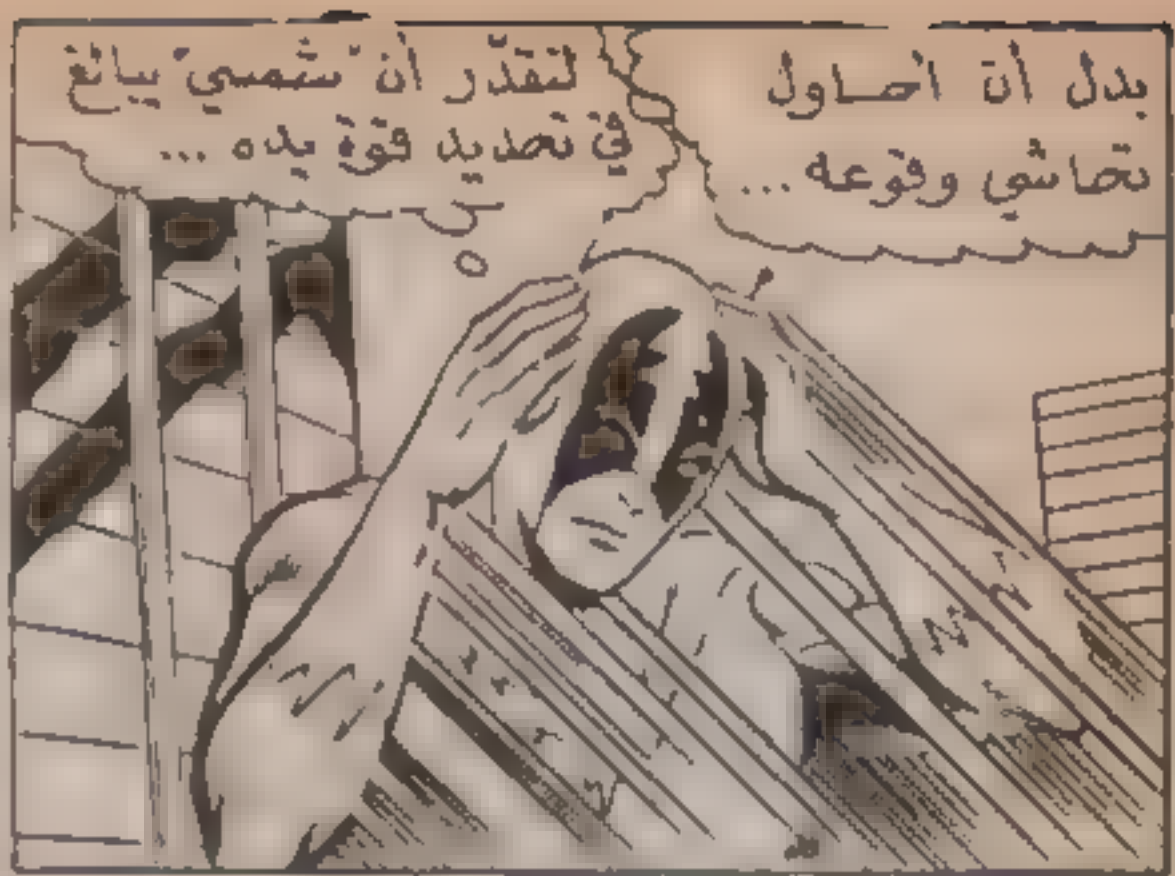 بدل أن أحاول
تحاشي وقوعه ...
لنقدّر أن "شمسي" يبالغ
في تحديد قوة يده ...